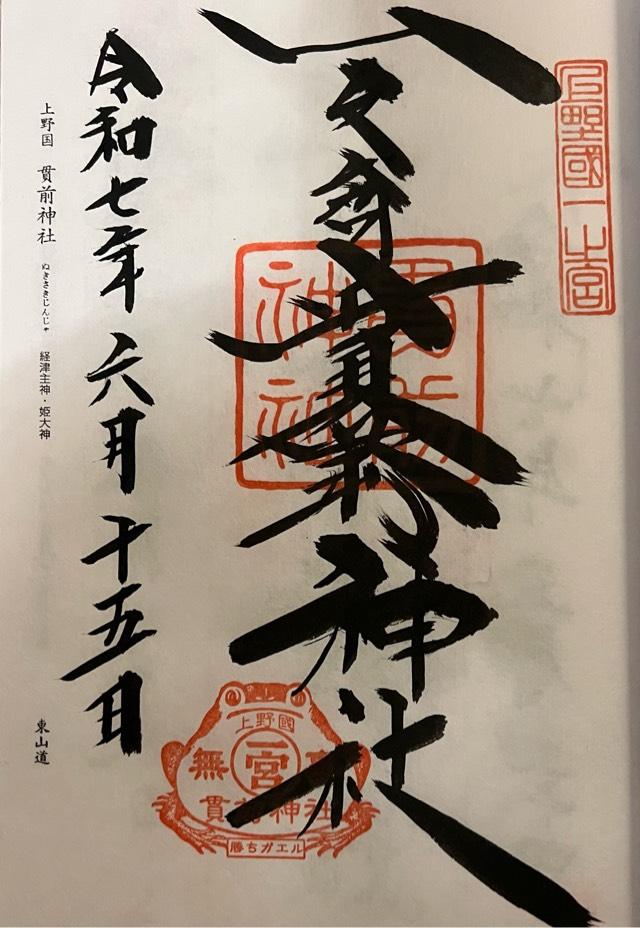 上野國一之宮
一之宮貫前神社
上野國
無 一宮
貫前神社
勝ちガエル
令和七年六月十五日
上野国 貫前神社 ぬきさきじんじゃ 経津主神・姫大神 東山道